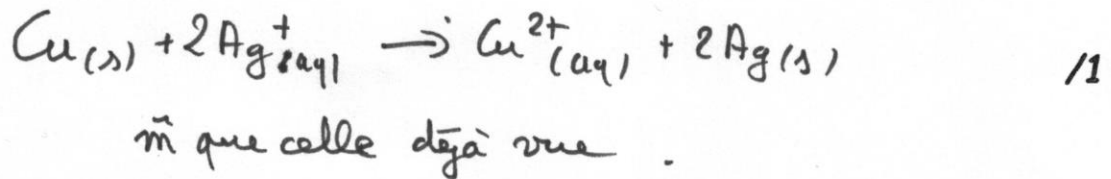 Cu(s) + 2Ag⁺(aq) → Cu²⁺(aq) + 2Ag(s) /1
m̃ que celle déjà vue .